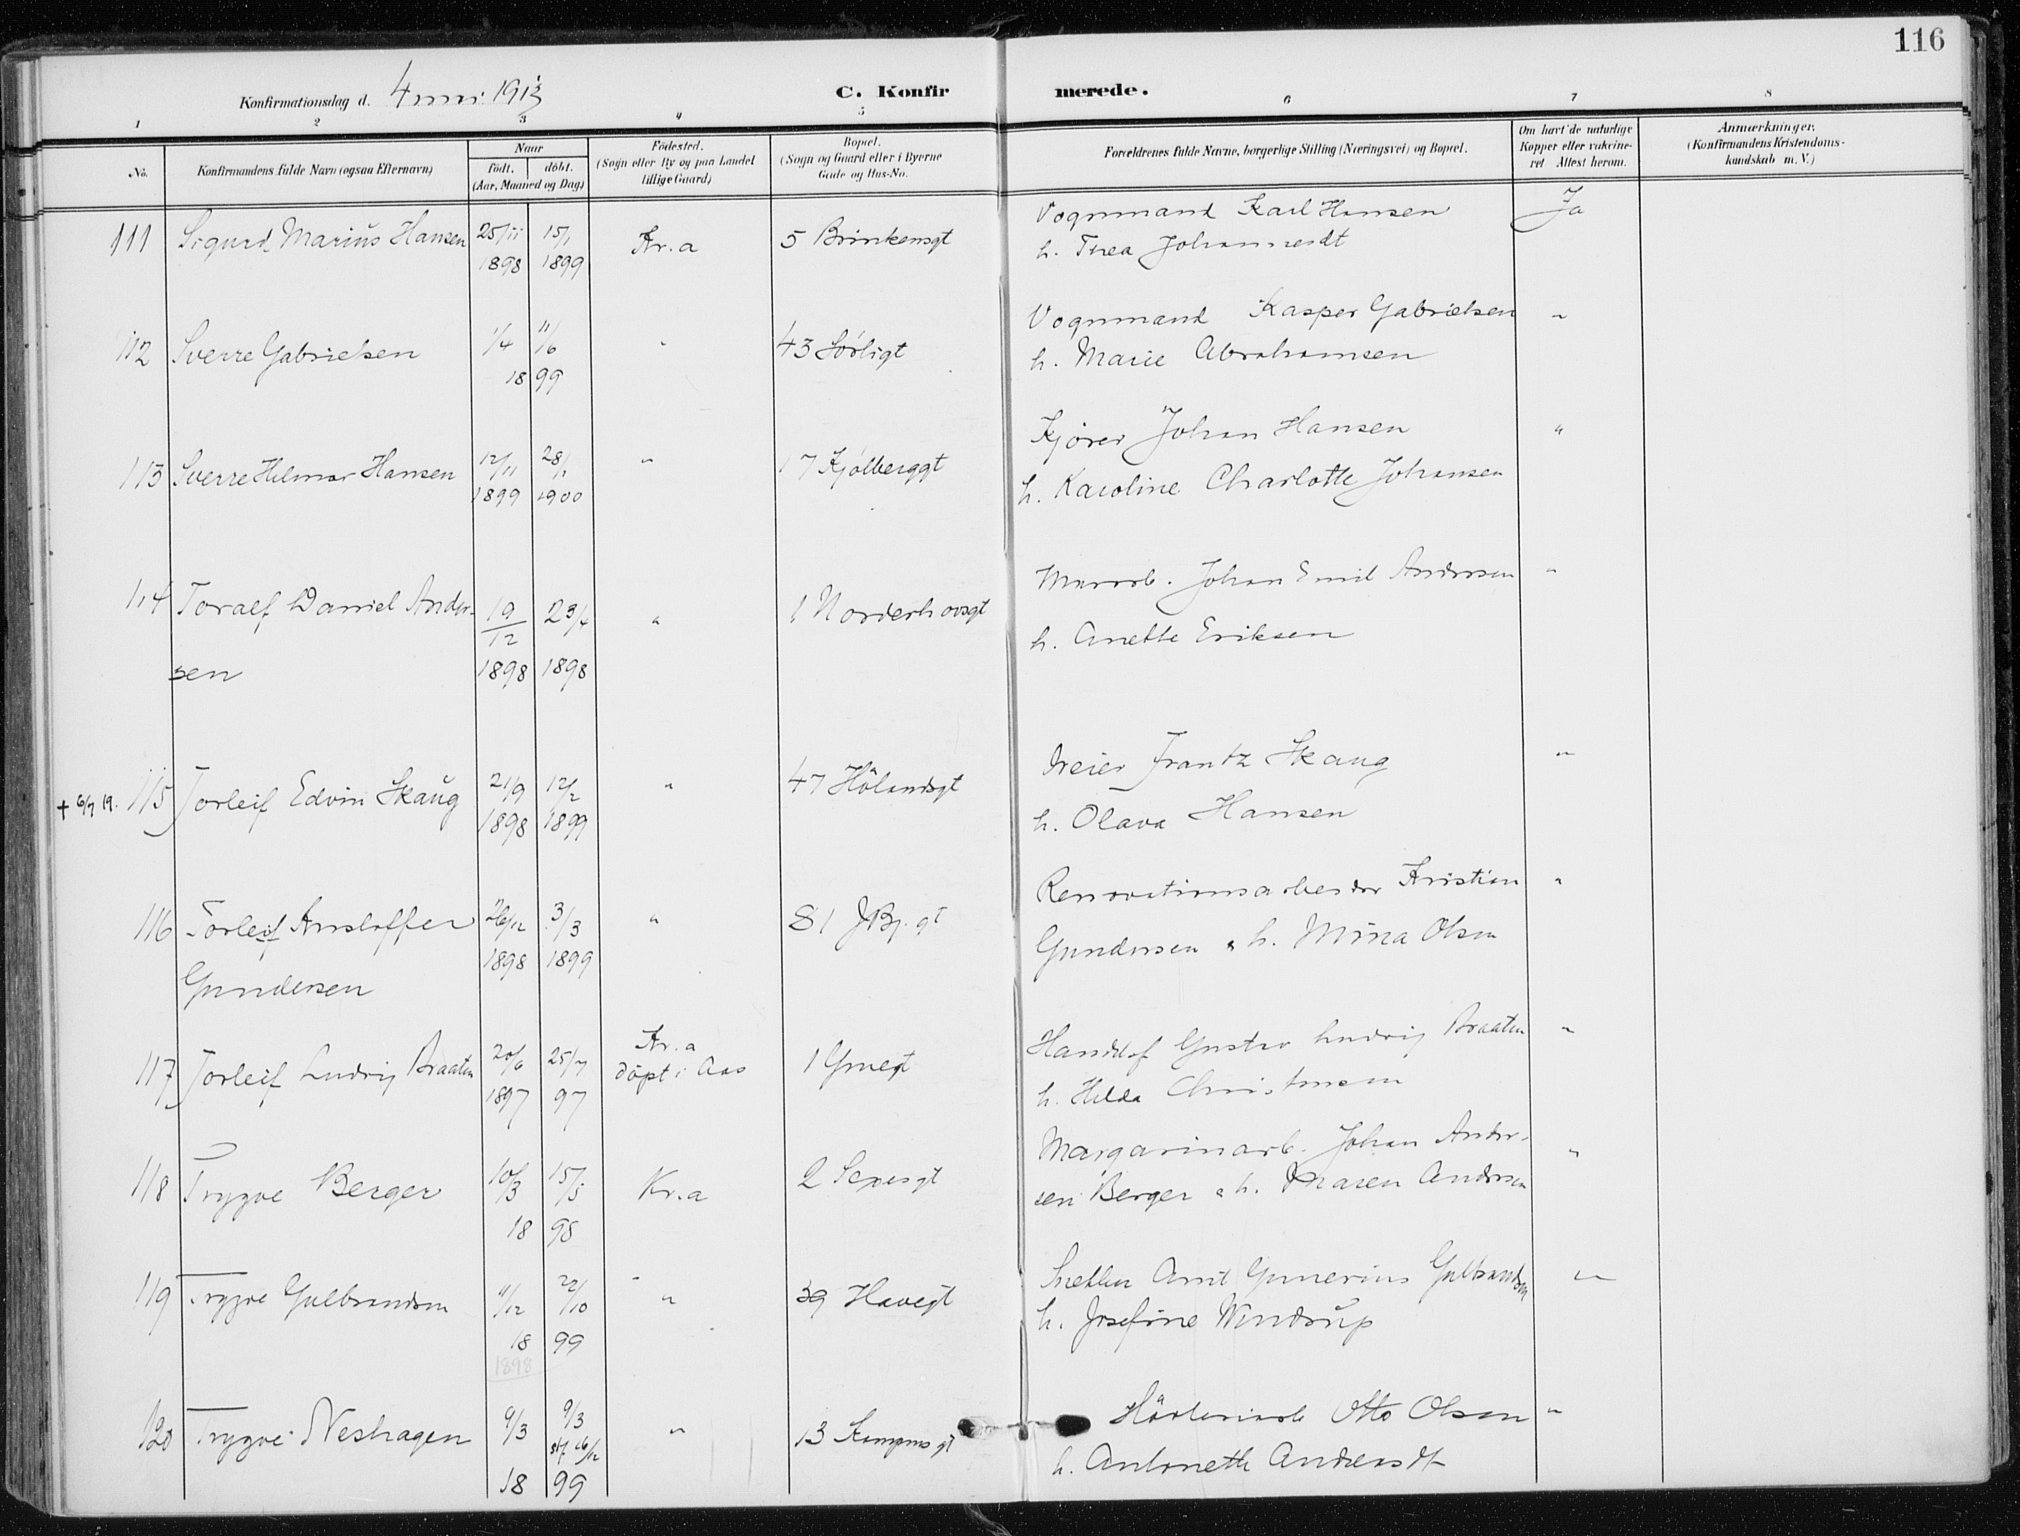 116
Konfirmationsdag d. 4 mai 1913
C. Konfirmerede.
1 2 3 4 5 6 7 8
No.
Konfirmandens fulde Navn (ogsaa Efternavn)
Naar
født. døbt.
(Aar, Maaned og Dag)
Fødested.
(Sogn eller By og paa Landet
tillige Gaard)
Bopæl.
(Sogn og Gaard eller i Byerne
Gade og Hus-No.
Forældrenes fulde Navne, borgerlige Stilling (Næringsvei) og Bopæl.
Om havt de naturlige
Kopper eller vakcine-
ret Attest herom.
Anmærkninger.
(Konfirmandens Kristendoms-
kundskab m. V.)
111 Sigurd Marius Hansen 25/11 15/1 Kr.a 5 Brinkensgt Vognmand Karl Hansen Ja
1898 1899 h. Thea Johannesdt
112 Sverre Gabrielsen 1/4 11/6 " 43 Sørligt Vognmand Kasper Gabrielsen "
18 99 h. Marie Abrahamsen
113 Sverre Hilmar Hansen 12/11 28/1 " 17 Kjølberggt Kjører Johan Hansen "
1899 1900 h. Karoline Charlotte Johansen
114 Toralf Daniel Ander- 19/12 23/4 " 1 Norderhovsgt Murarb. Johan Emil Andersen "
sen 1898 1898 h. Anette Eriksen
+ 6/7 19. 115 Torleif Edvin Skaug 21/9 12/2 " 47 Hölandsgt Dreier Frantz Skaug "
1898 1899 h. Olava Hansen
116 Torleif Ansloffer 26/12 3/3 " 81 JBj.gt Renovationsarbeider Kristian "
Gundersen 1898 1899 Gundersen & h. Mina Olsen
117 Torleif Ludvig Braaten 20/6 25/7 Kr.a 1 Gruegt Handelsf Gustav Ludvig Braaten "
1897 97 døpt i Aas h. Hilda Christensen
118 Trygve Berger 10/3 15/5 Kr.a 2 Sexesgt Margarinarb. Johan Ander-
18 98 sen Berger & h. Maren Andersen "
119 Trygve Gulbrandsen 11/12 22/10 " 39 Havegt Snekker Anit Gunerius Gulbrandsen "
18 99 h. Josefine Windrup
1898
120 Trygve Neshagen 9/3 9/3 " 13 Kampensgt Otto Olsen "
stf 26/12
18 99 h. Antonette Andersdt